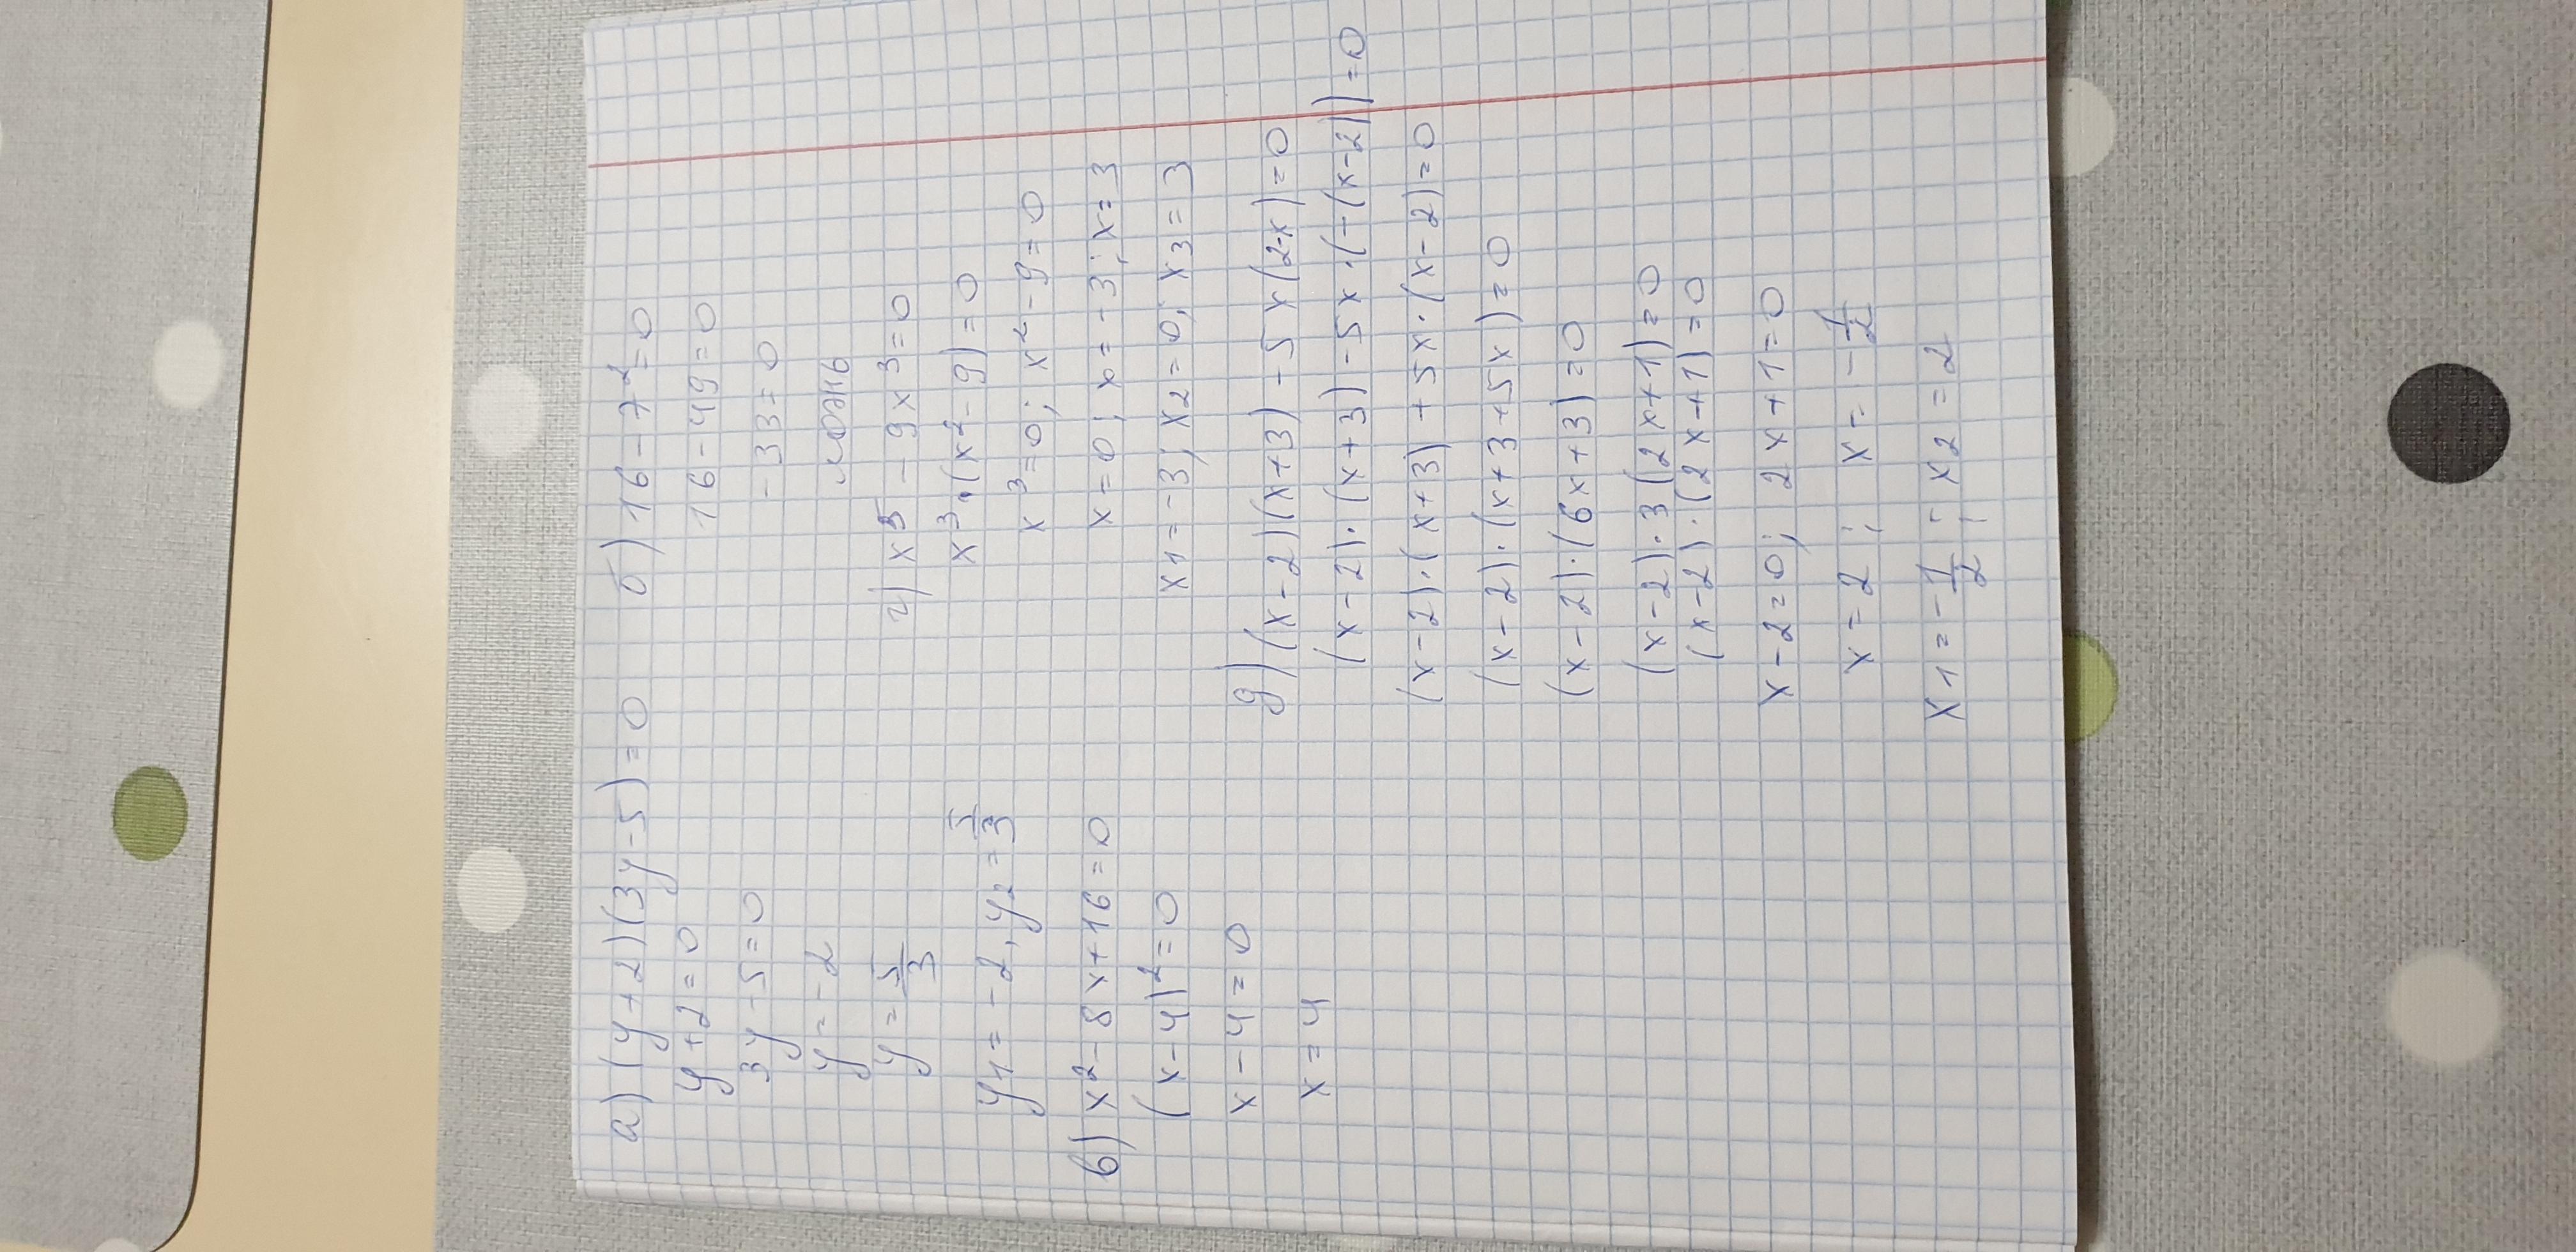 а) (y+2)(3y-5)=0
y+2=0
3y-5=0
y=-2
y=5/3
y1=-2, y2=5/3
в) x²-8x+16=0
(x-4)²=0
x-4=0
x=4
б) 16-7²=0
16-49=0
-33=0
ложь
г) x⁵-9x³=0
x³·(x²-9)=0
x³=0; x²-9=0
x=0; x=-3; x=3
x1=-3; x2=0; x3=3
д) (x-2)(x+3)-5x(2-x)=0
(x-2)·(x+3)-5x·(-(x-2))=0
(x-2)·(x+3)+5x·(x-2)=0
(x-2)·(x+3+5x)=0
(x-2)·(6x+3)=0
(x-2)·3(2x+1)=0
(x-2)·(2x+1)=0
x-2=0; 2x+1=0
x=2; x=-1/2
x1=-1/2; x2=2